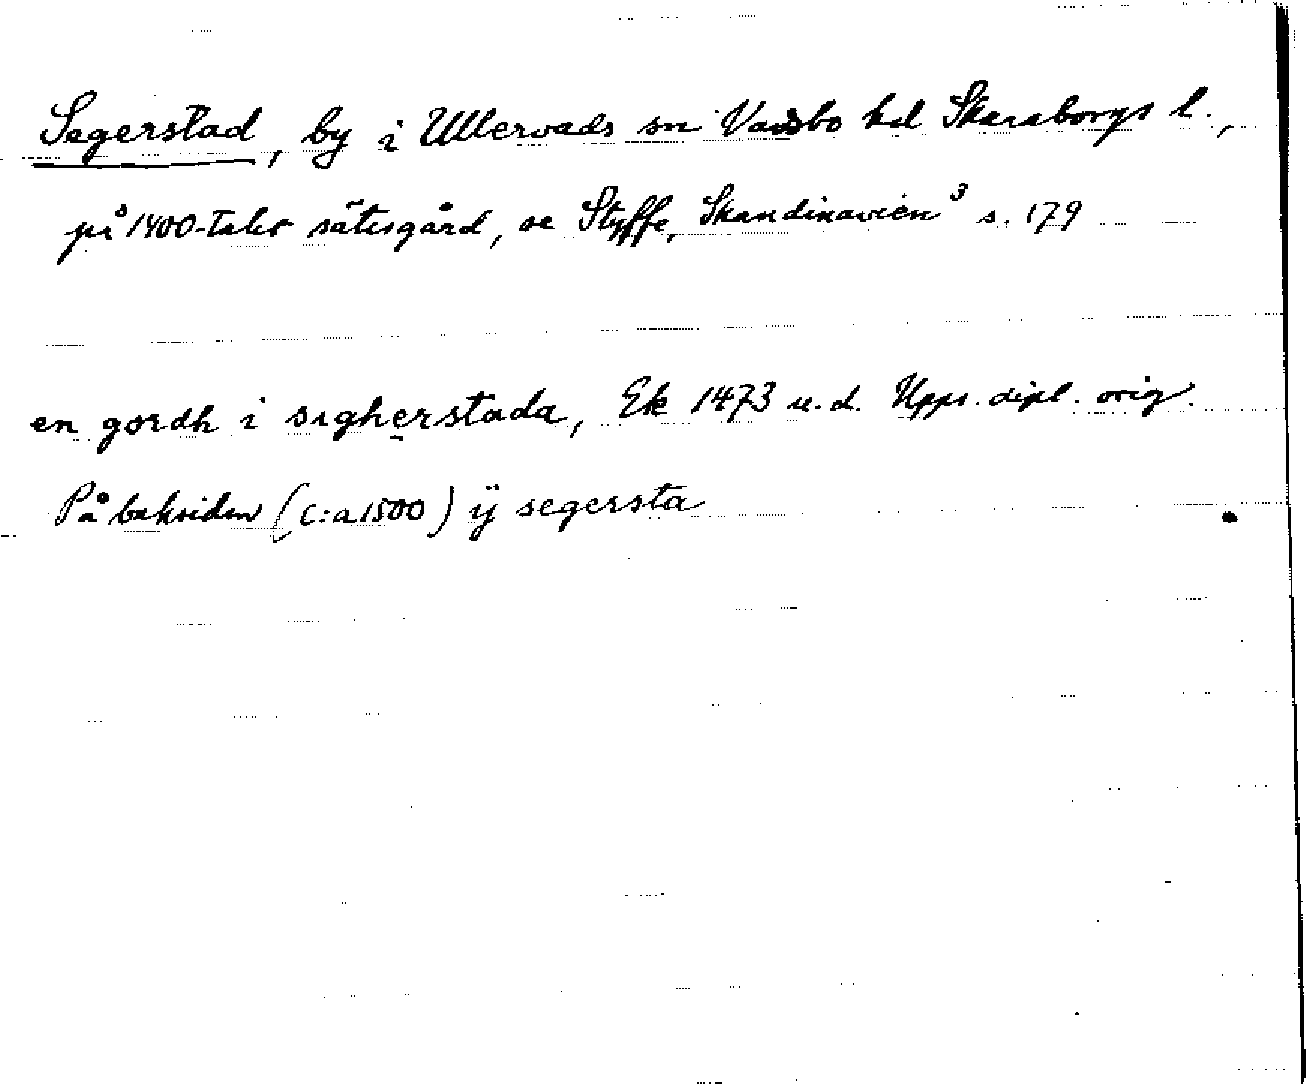 Segerstad, by i Ullervads sn Vadsbo hd Skaraborgs l.,
på 1400-talet sätesgård, se Styffe, Skandinavien³ s. 179
en gordh i sigherstada, Ek 1473 u.d. Upps. dipl. orig.
På baksidan (c:a 1500) ÿ segersta